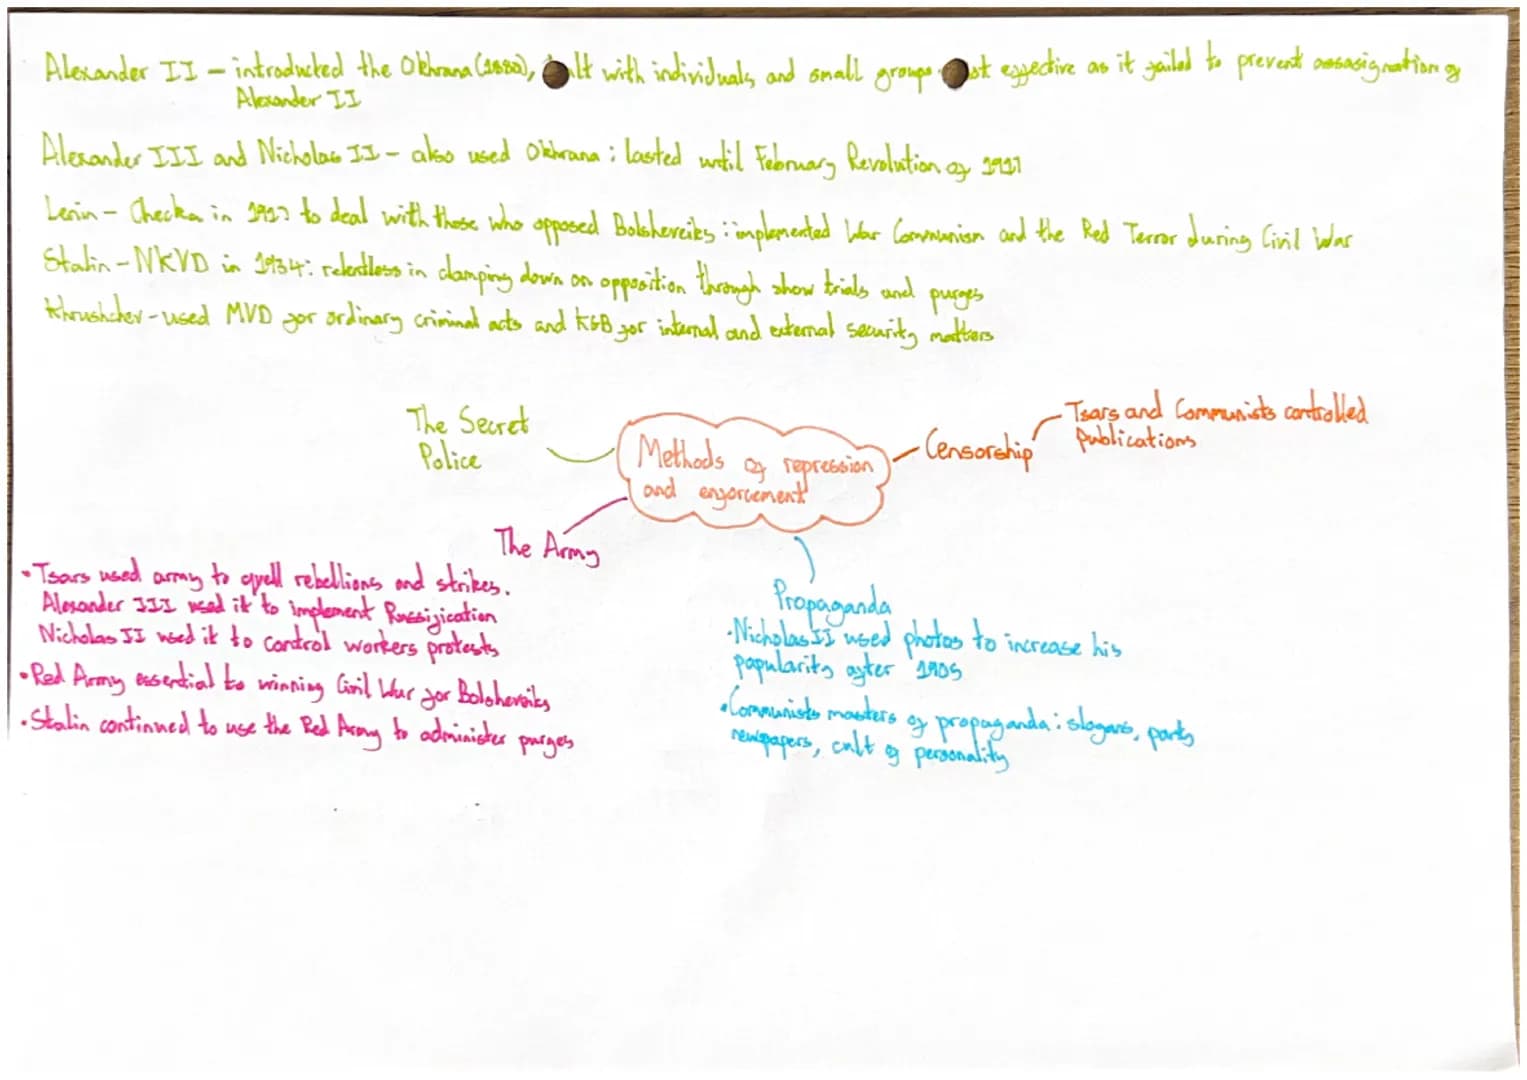 Alexander II – introducted the Okhrana (1880), lt with individuals, and small groups. st effective as it failed to prevent assasignation of
Alexander II
Alexander III and Nicholas II – also used Okhrana : lasted until February Revolution of 1917
Lenin – Checka in 1917 to deal with those who opposed Bolsheveiks : implemented War Communism and the Red Terror during Civil War
Stalin – NKVD in 1934: relentless in clamping down on opposition through show trials and purges
Khrushchev – used MVD for ordinary criminal acts and KGB for internal and external security matters
The Secret
Police
Methods of repression
and enforcement
Censorship
Tsars and Communists controlled
publications
The Army
• Tsars used army to quell rebellions and strikes.
Alexander III used it to implement Russification
Nicholas II used it to control workers protests
• Red Army essential to winning Civil War for Bolsheveiks
• Stalin continued to use the Red Army to administer purges
Propaganda
• Nicholas II used photos to increase his
popularity after 1905
• Communists masters of propaganda : slogans, party
newspapers, cult of personality